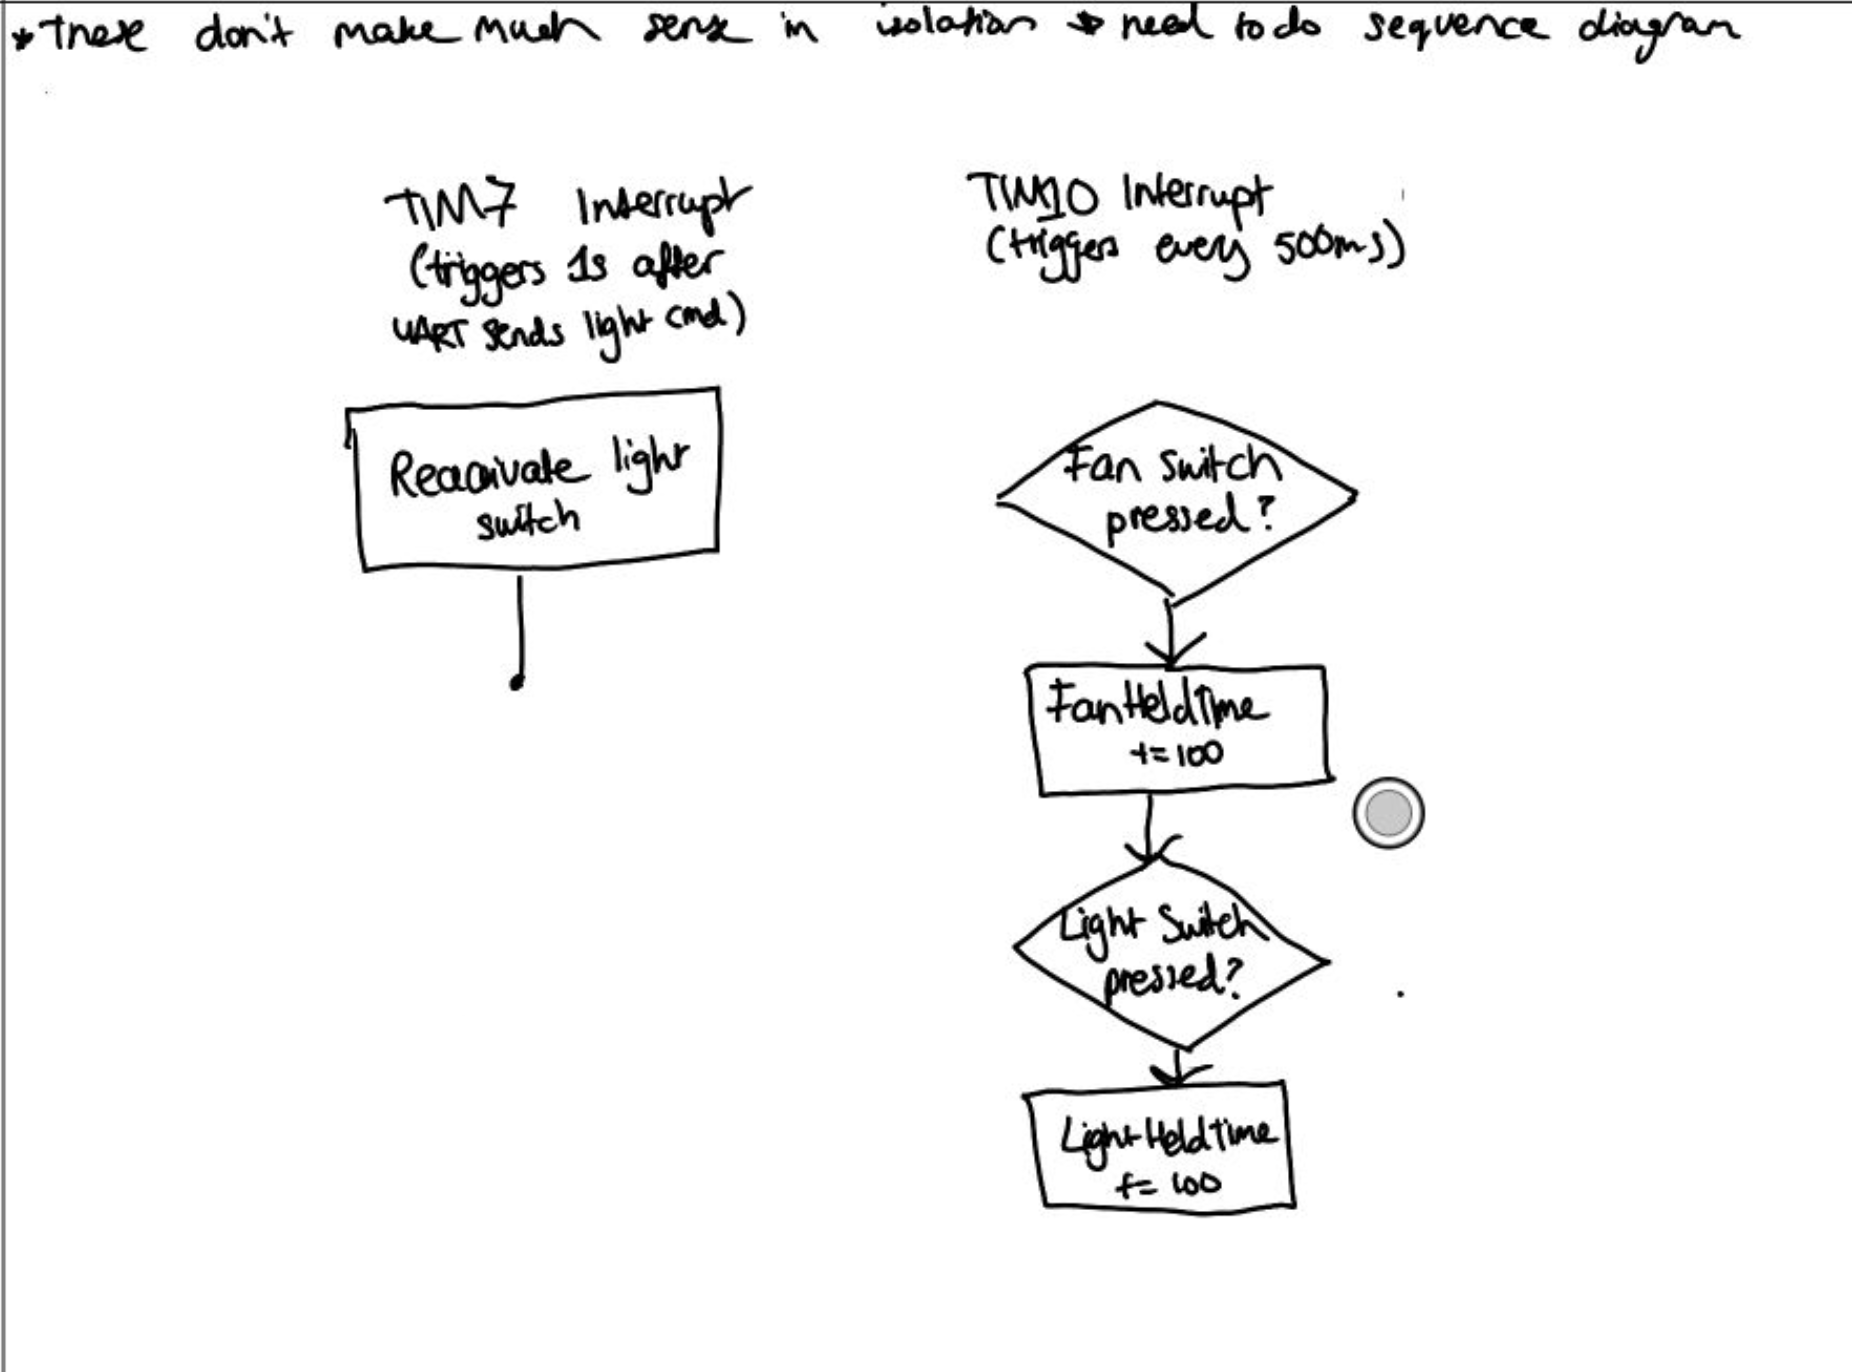 * These don't make much sense in isolation * need to do sequence diagram
TIM7 Interrupt
(triggers 1s after
UART sends light cmd)
Reacivate light
switch
TIM10 Interrupt
(triggers every 500ms)
Fan Switch
pressed?
FanHeldTime
+=100
Light Switch
pressed?
LightHeldTime
+= 100